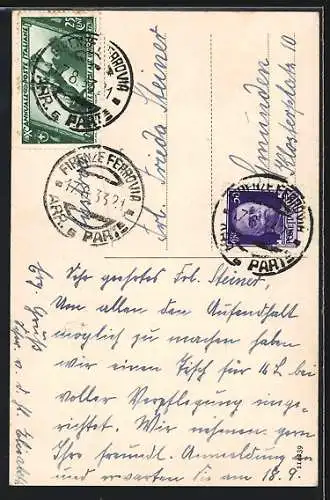 X ANNUALE
POSTE ITALIANE
25
FIRENZE FERROVIA
ARR. e PART.
FIRENZE FERROVIA
ARR. e PART.
FIRENZE FERROVIA
ARR. e PART.
50
Frl. Frieda Steiner
Gmunden
Klosterplatz 10
Sehr geehrtes Frl. Steiner,
Um allen den Aufenthalt
möglich zu machen haben
wir einen Tisch für 14 L. bei
voller Verpflegung einge-
richtet. Wir nehmen gern
Ihre freundl. Anmeldung
und erwarten Sie am 18. 9.
Erg. Gruß